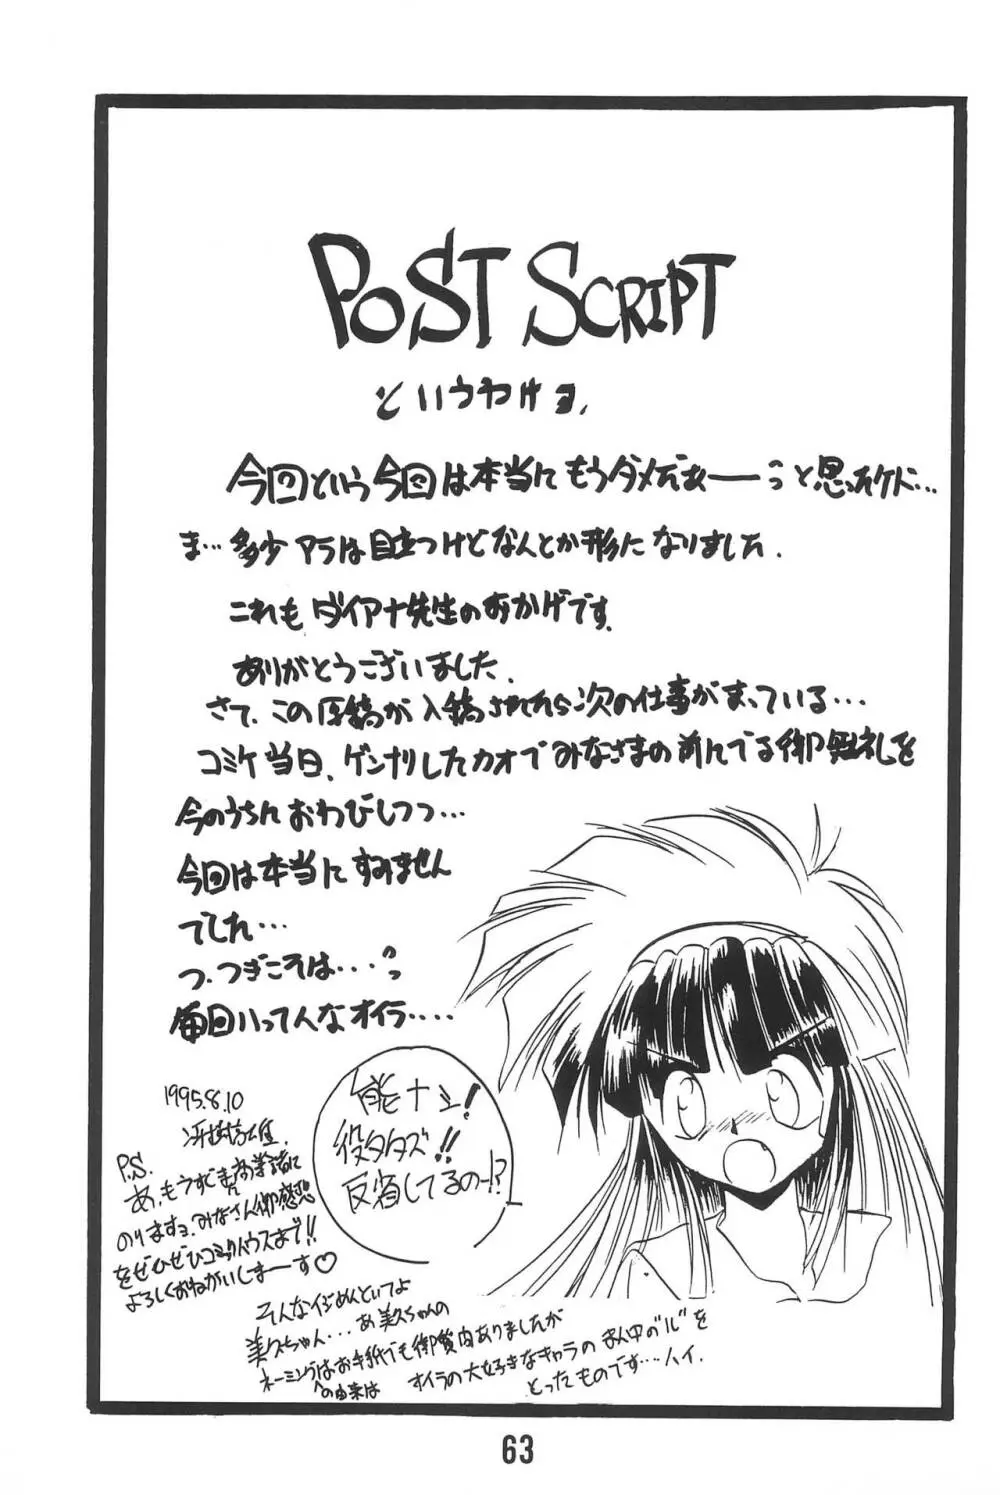 POST SCRIPT
というわけヨ.
今回という今回は本当にもうダメだぁーーっと思ったケド…
ま…多少アラは目立つけどなんとか形になりました.
これも ダイアナ先生のおかげです.
ありがとうございました.
さて、この原稿が入稿されたら次の仕事がまっている…
コミケ当日、ゲンナリしたカオでみなさまの前んでる御無礼を
今のうちんおわびしつつ…
今回は本当にすみません
でした…
つ、つぎこそは…っ
毎回いってんなオイラ……
1995.8.10
能ナシ!
役タタズ!!
反省してるのー!?
P.S.
あ,もうすぐ
のりますヨ.みなさん御感想
をぜひぜひコミックハウスまで!!
よろしくおねがいしまーす♡
そんなイジめんといてよ
美久ちゃん…あ 美久ちゃんの
ネーミングの由来はお手紙でも御質問ありましたが
オイラの大好きなキャラのまん中の"ル"を
とったものです…ハイ.
63